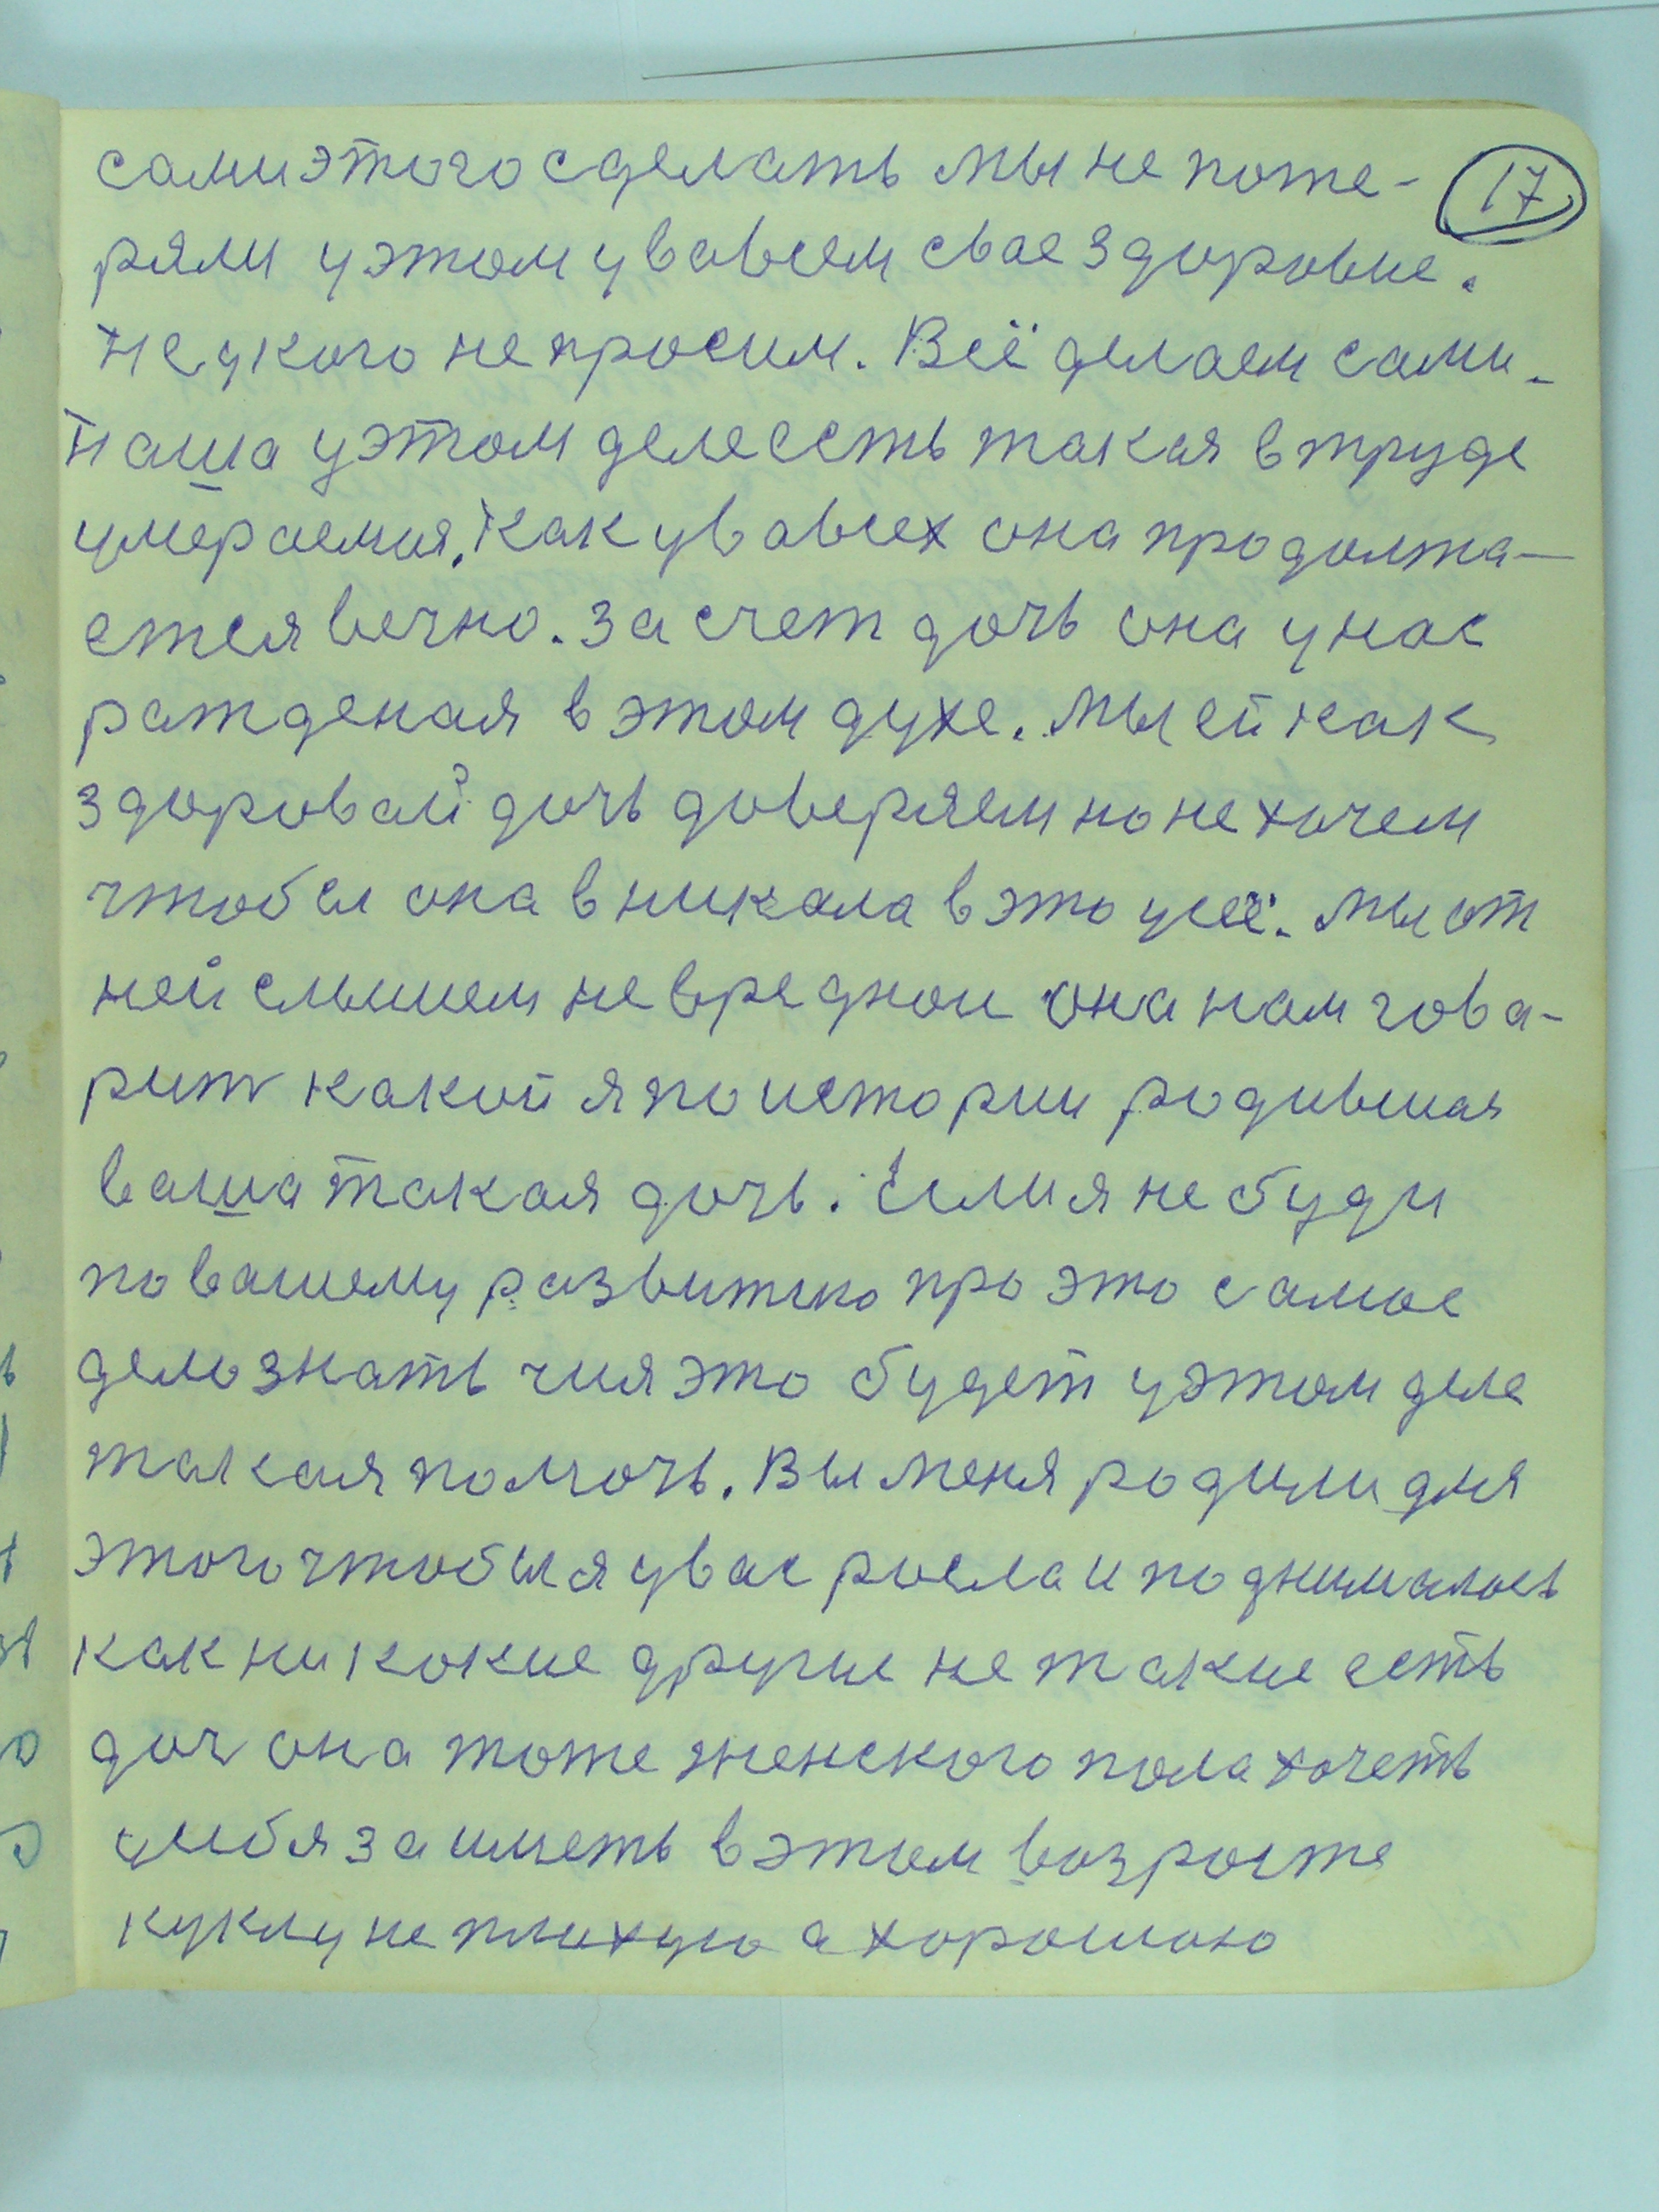 сами этого сделать мы не поте-
17
ряли у этом у вовсем свае здоровие.
Не укого не просим. Всё делаем сами.
Наша у этом деле есть такая в труде
умераемая. Как у вовсех она продолжа-
ется вечно. За счет дочь она у нас
ражденая в этом духе. Мы ей как
здоровай дочь доверяем но не хочем
чтобы она вникала в это усё. Мы от
ней слышем не вредное она нам гова-
рит какой я по истории родившая
ваша такая дочь. Если я не буди
по вашему развитию про это самое
дело знать чия это будет у этом деле
такая помочь. Вы меня родили для
этого чтобы я у вас росла и поднималось
как ни кокие другие не такие есть
доч она тоже женского пола хочеть
у себя заиметь в этом возросте
куклу не плохую а хорошою